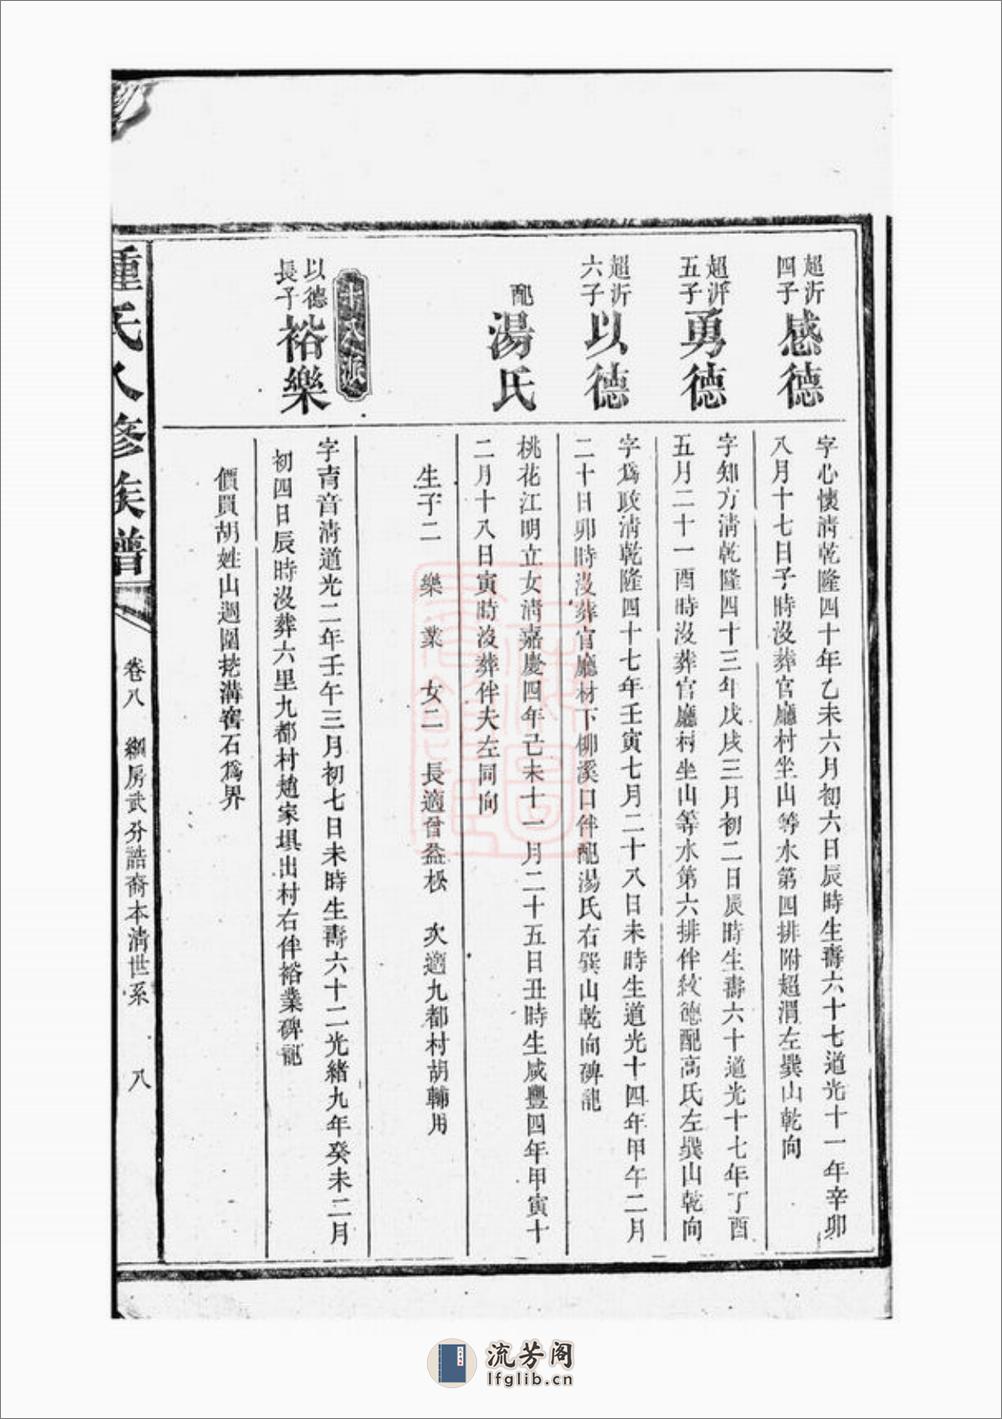 超沂四子 感德
字心懷清乾隆四十年乙未六月初六日辰時生壽六十七道光十一年辛卯
八月十七日子時沒葬官廳村坐山等水第四排附超渭左巽山乾向
超沂五子 勇德
字知方清乾隆四十三年戊戌三月初二日辰時生壽六十道光十七年丁酉
五月二十一酉時沒葬官廳村坐山等水第六排伴敍德配高氏左巽山乾向
超沂六子 以德
字為政清乾隆四十七年壬寅七月二十八日未時生道光十四年甲午二月
二十日卯時沒葬官廳材下柳溪口伴配湯氏右巽山乾向碑記
配 湯氏
桃花江明立女清嘉慶四年己未十一月二十五日丑時生咸豐四年甲寅十
二月十八日寅時沒葬伴夫左同向
生子二 樂 業 女二 長適曾益松 次適九都村胡輔用
十八派
以德長子 裕樂
字育音清道光二年壬午三月初七日未時生壽六十二光緒九年癸未二月
初四日辰時沒葬六里九都村趙家垻出村右伴裕業碑記
價買胡姓山週圍挖溝窖石為界
氏八修族譜
卷八 纘房武分誥裔本清世系 八
流芳阁
lfglib.cn